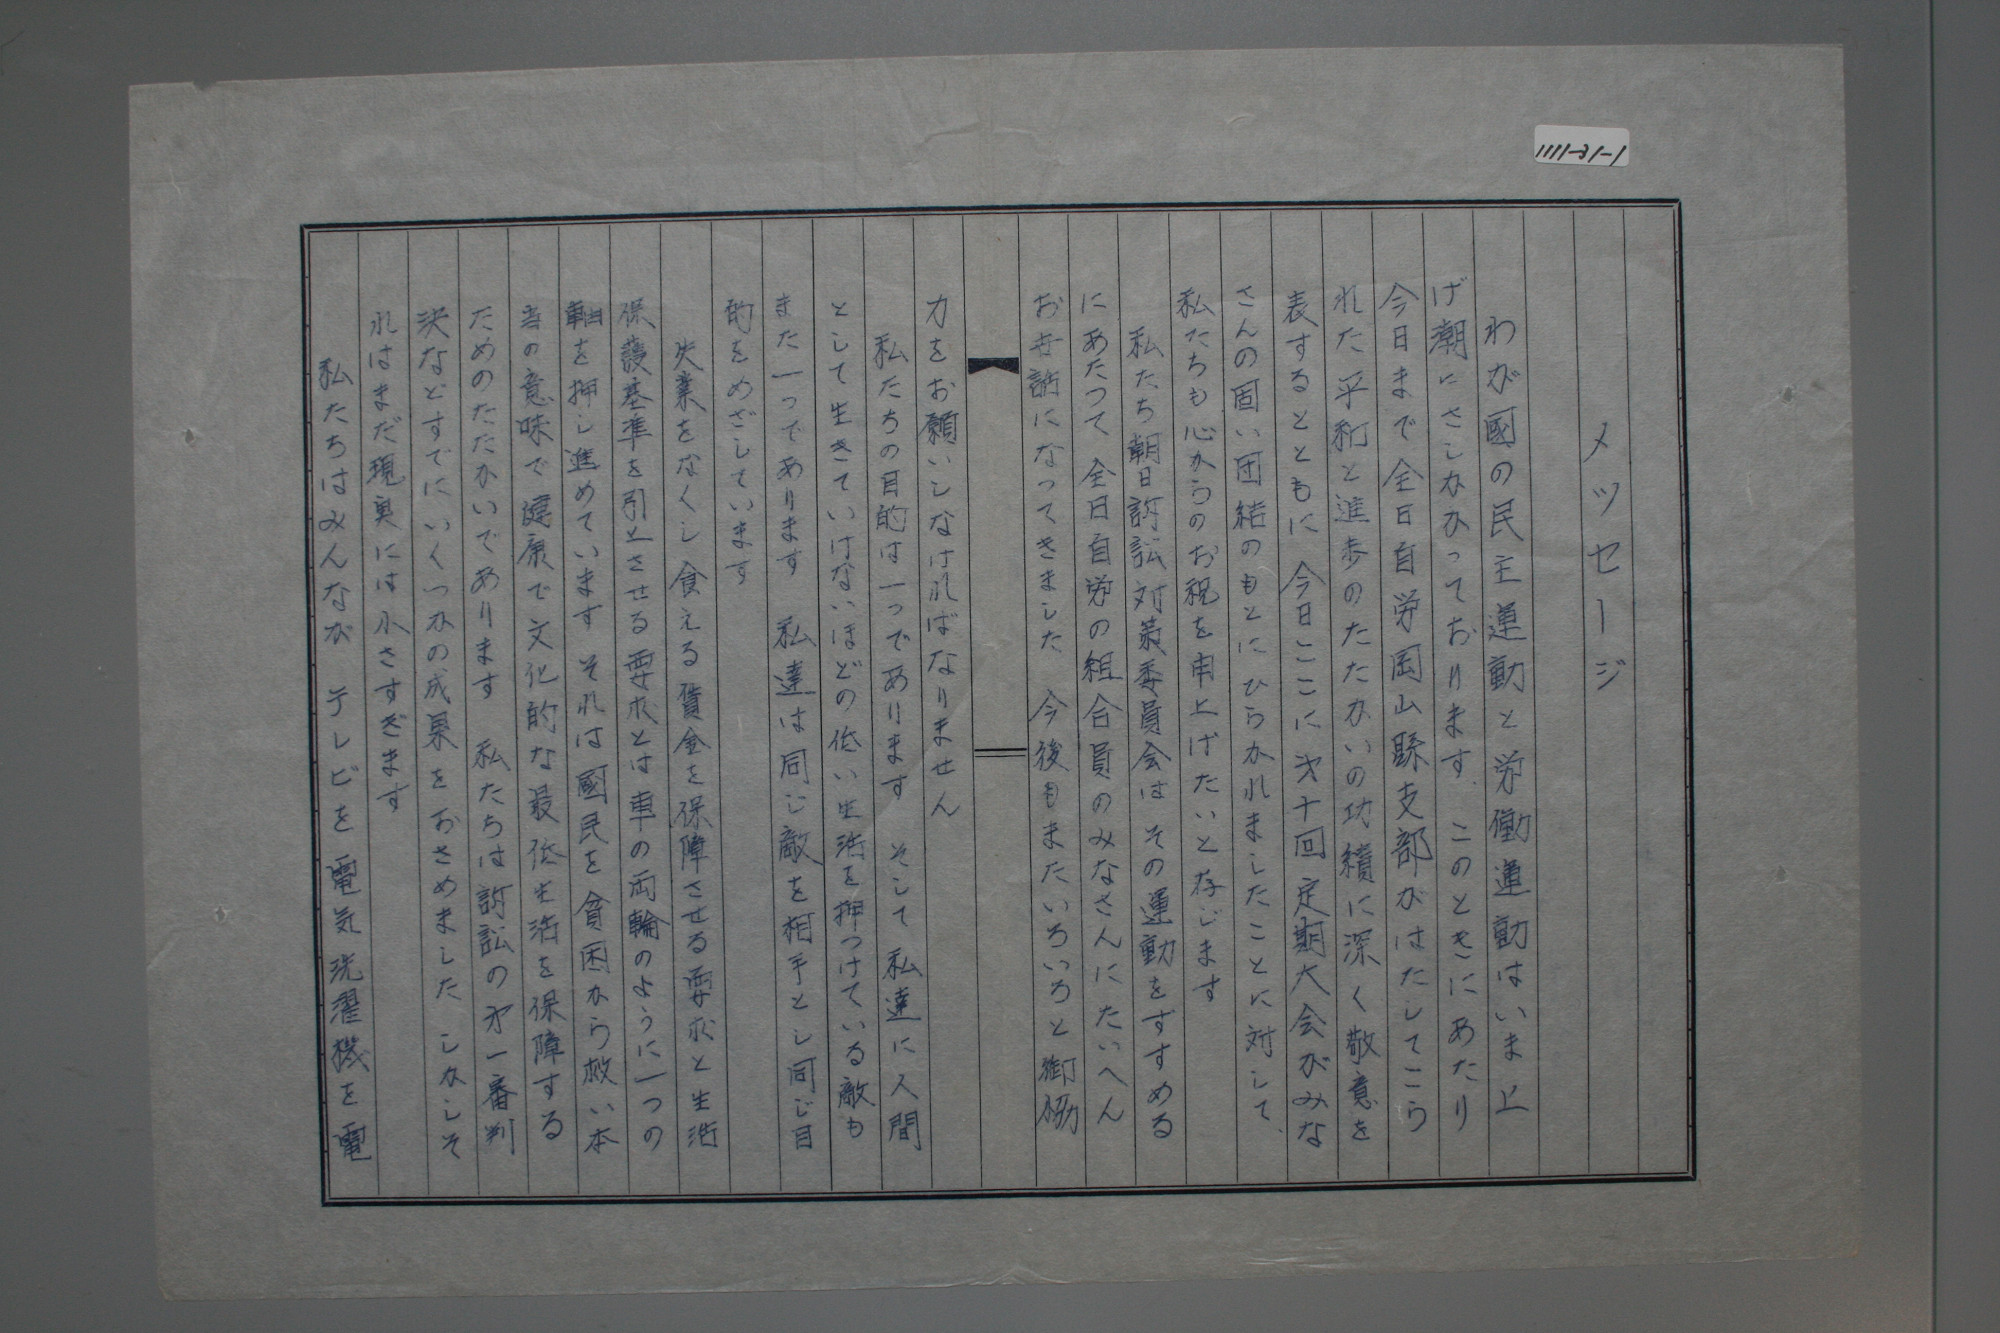 1111-31-1
メッセージ
わが國の民主運動と労働運動はいま上
げ潮にさしかかっております。このときにあたり
今日まで全日自労岡山縣支部がはたしてこら
れた平和と進歩のたたかいの功績に深く敬意を
表するとともに 今日ここに才十回定期大会がみな
さんの固い団結のもとにひらかれましたことに対して、
私たちも心からのお祝を申上げたいと存じます
私たち朝日訴訟対策委員会は その運動をすすめる
にあたつて 全日自労の組合員のみなさんにたいへん
お世話になってきました 今後もまたいろいろと御協
力をお願いしなければなりません
私たちの目的は一つであります そして私達に人間
として生きていけないほどの低い生活を押つけている敵も
また一つであります 私達は同じ敵を相手とし同じ目
的をめざしています
失業をなくし 食える賃金を保障させる要求と生活
保護基準を引上させる要求とは車の両輪のように一つの
軸を押し進めています それは國民を貧困から救い本
当の意味で健康で文化的な最低生活を保障する
ためのたたかいであります 私たちは訴訟の才一審判
決などすでにいくつかの成果をおさめました しかしそ
れはまだ現実には小さすぎます
私たちはみんなが テレビを電気洗濯機を電